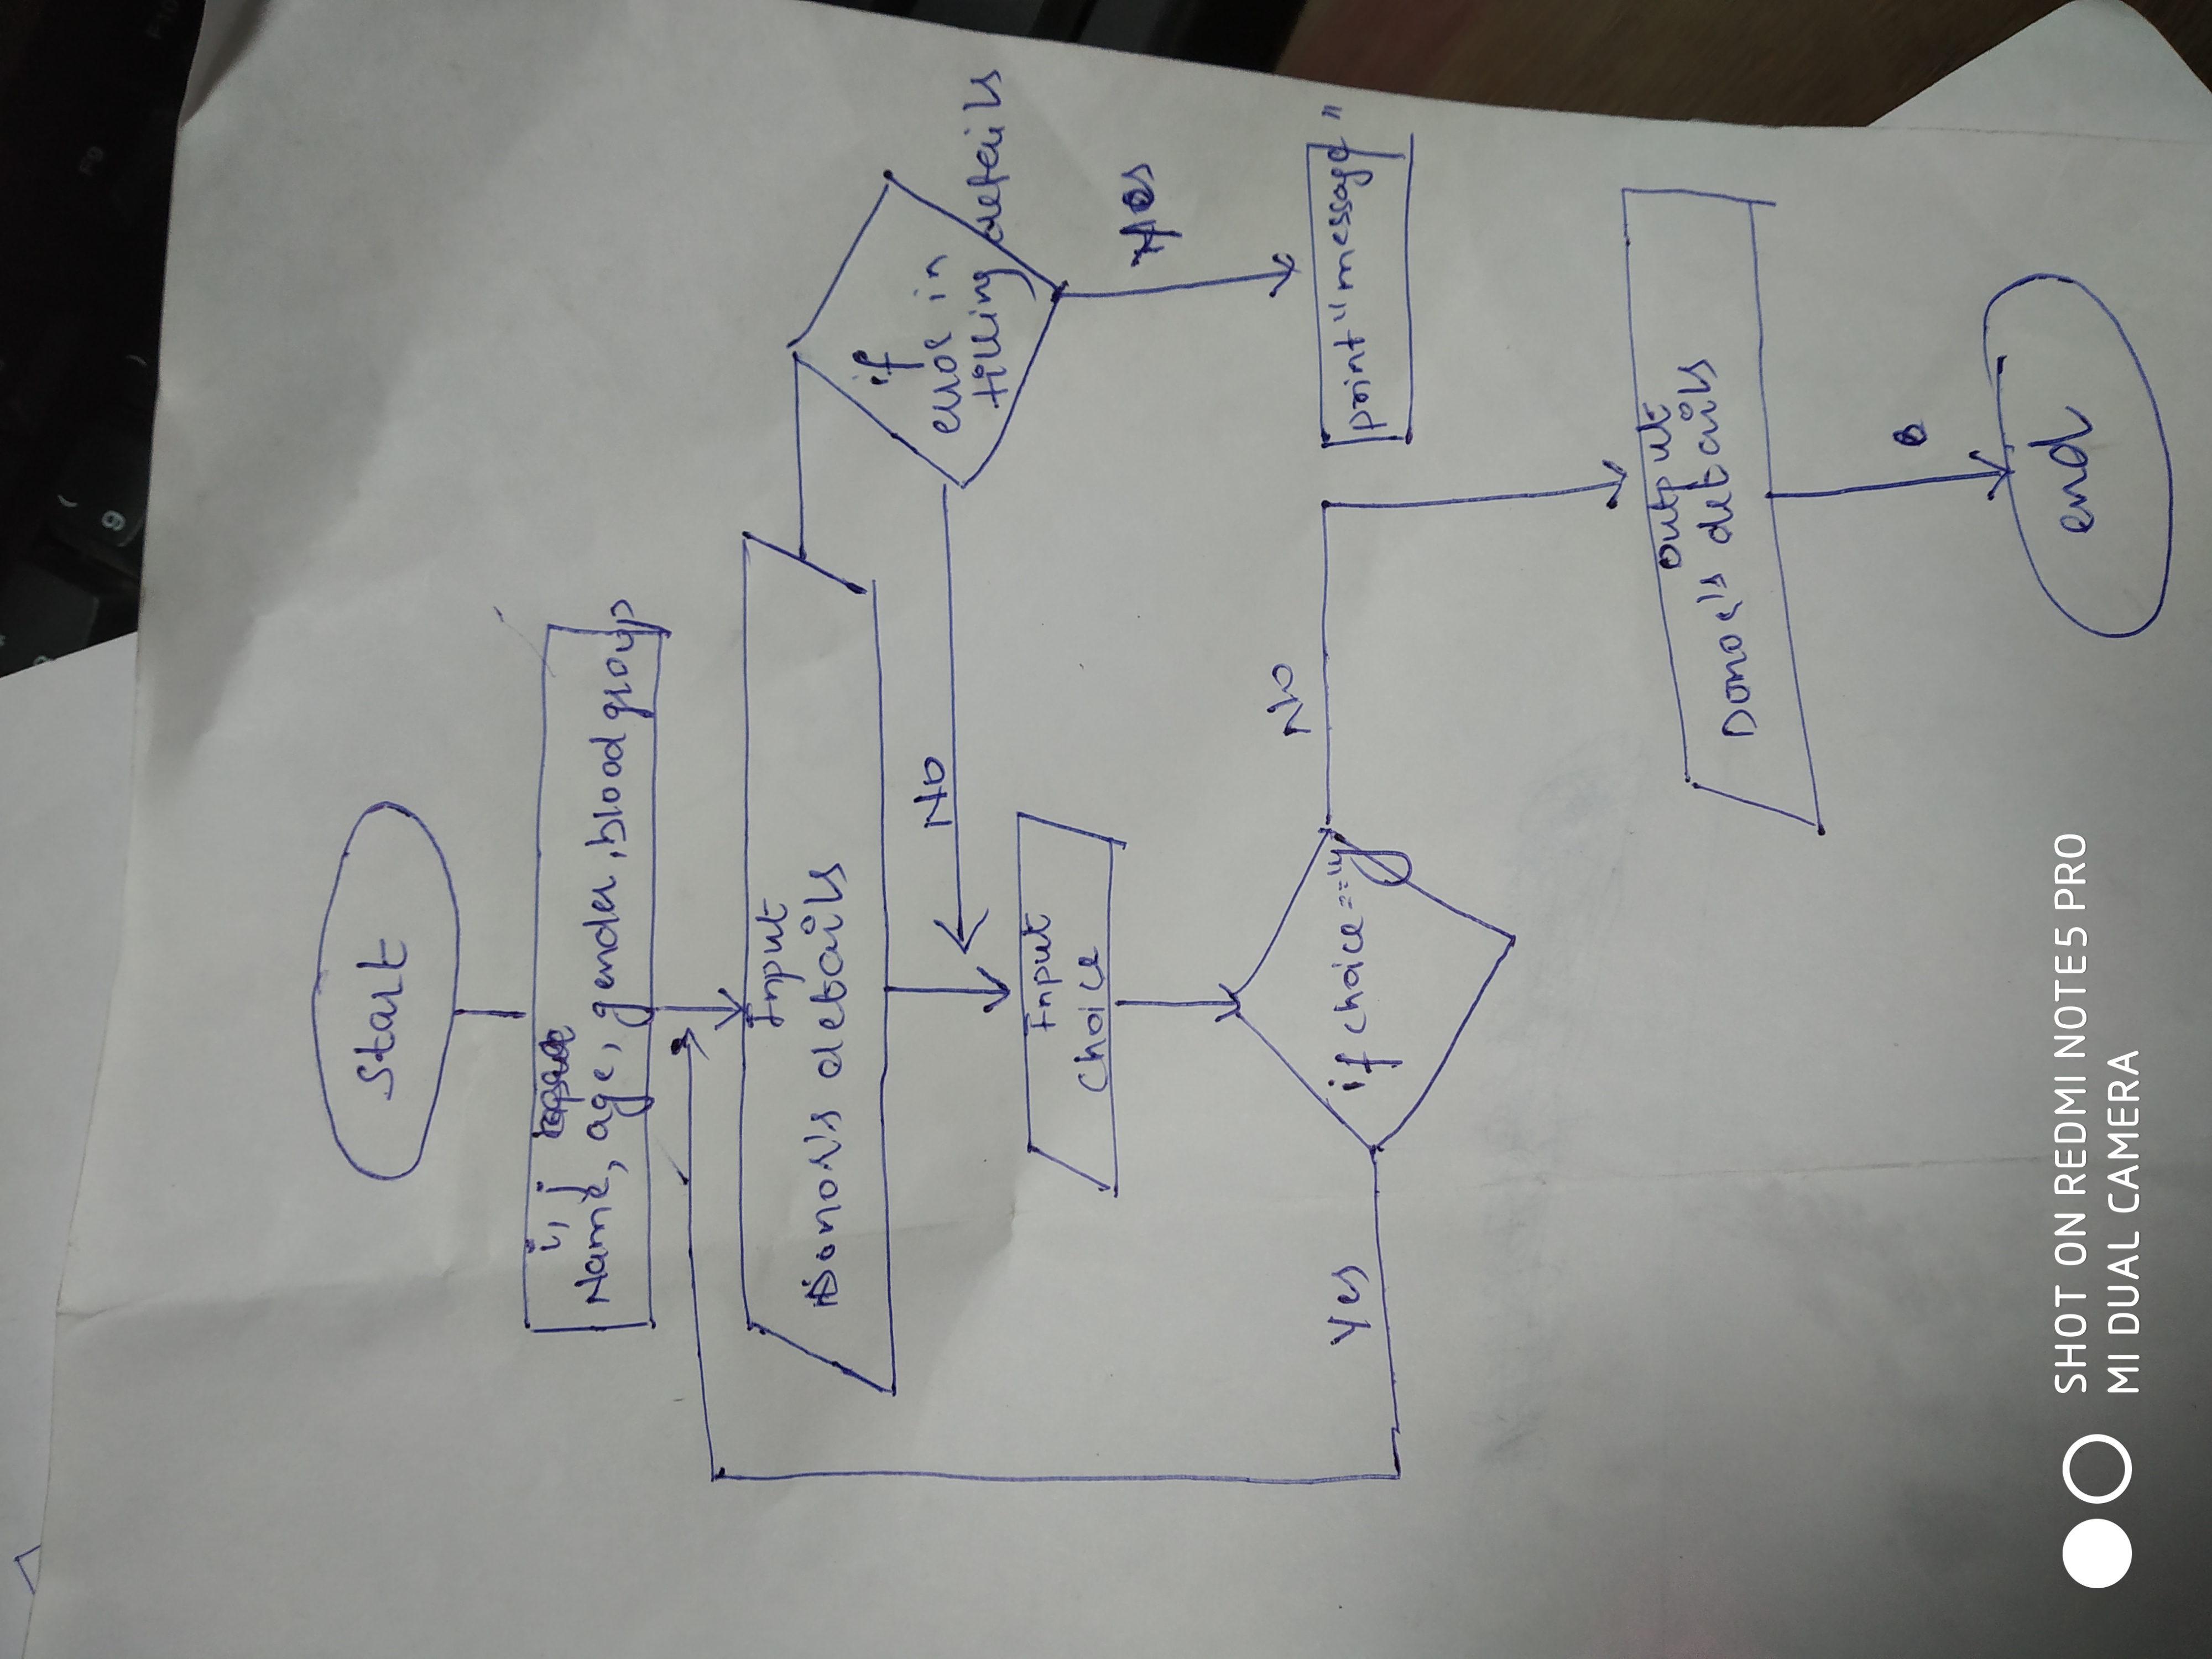 Start
i, j
Name, age, gender, blood group
Input
Donor's details
if
error in
filling details
No
Input
Choice
Yes
if choice=="y"
No
Yes
print "message"
output
Donor's details
end
SHOT ON REDMI NOTE5 PRO
MI DUAL CAMERA
9
F9
F10